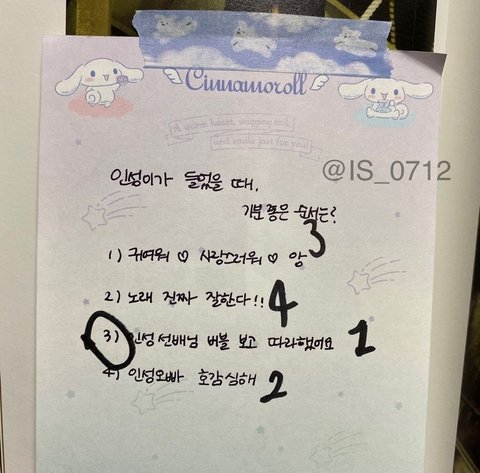 Cinnamoroll
A warm heart, wagging tail,
and smile just for you.
@IS_0712
인성이가 들었을 때,
기분 좋은 순서는?
1) 귀여워 ♡ 사랑스러워 ♡ 앙 3
2) 노래 진짜 잘한다!! 4
3) 인성선배님 버블 보고 따라했어요 1
4) 인성오빠 호감심해 2